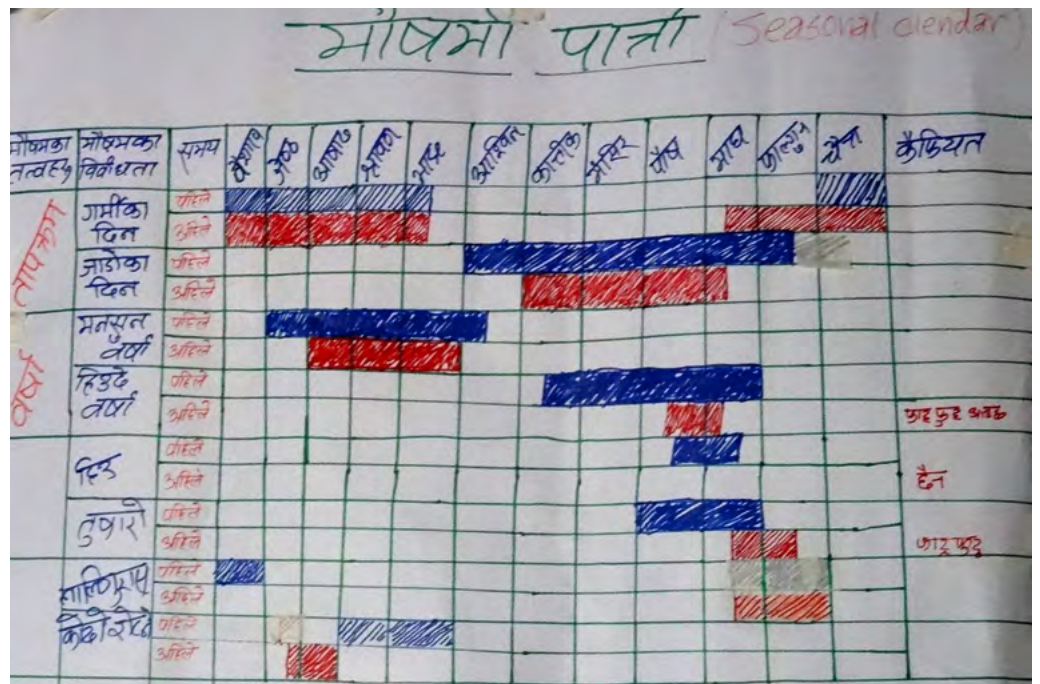 मौषमी पात्रो (Seasonal clendar)
मौषमका तत्वहरु मौषमका विविधता समय वैशाख जेष्ठ आषाढ श्रावण भाद्र आश्विन कार्तिक मंसिर पौष माघ फाल्गुन चैत्र कैफियत
तापक्रम
गर्मीका दिन पहिले
अहिले
जाडोका दिन पहिले
अहिले
वर्षा
मनसुन वर्षा पहिले
अहिले
हिउदे वर्षा पहिले
अहिले
हिउ पहिले
अहिले छैन
तुषारो पहिले
अहिले फाट्ट फुट्ट
पहिले
अहिले
कोदो रोप्ने पहिले
अहिले